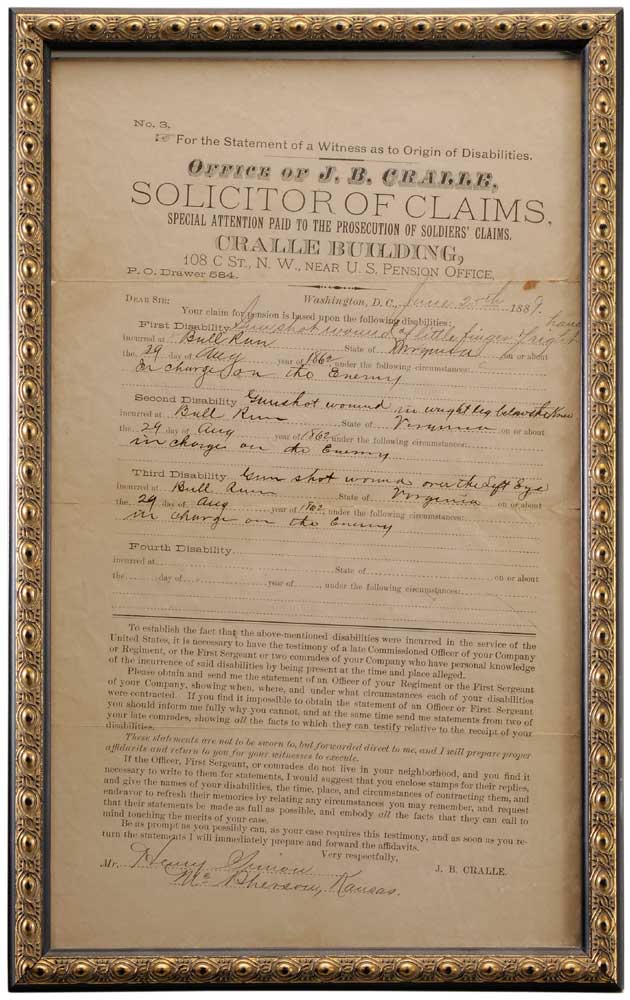 No. 3.
☞ For the Statement of a Witness as to Origin of Disabilities.
OFFICE OF J. B. CRALLE,
SOLICITOR OF CLAIMS,
SPECIAL ATTENTION PAID TO THE PROSECUTION OF SOLDIERS' CLAIMS.
CRALLE BUILDING,
108 C ST., N. W., NEAR U. S. PENSION OFFICE,
P. O. Drawer 584.
Washington, D. C., June 20th 1889.
DEAR SIR:
Your claim for pension is based upon the following disabilities: hand
First Disability Gunshot wound of little finger right
incurred at Bull Run State of Virginia on or about
the 29 day of Aug year of 1862 under the following circumstances:
charge on the Enemy
Second Disability Gunshot wound in wright leg below the Knee
incurred at Bull Run State of Virginia on or about
the 29 day of Aug year of 1862 under the following circumstances:
in charge on the Enemy
Third Disability Gun shot wound over the Left Eye
incurred at Bull Run State of Virginia on or about
the 29 day of Aug year of 1862, under the following circumstances:
in charge on the Enemy
Fourth Disability
incurred at State of on or about
the day of year of under the following circumstances:
To establish the fact that the above-mentioned disabilities were incurred in the service of the
United States, it is necessary to have the testimony of a late Commissioned Officer of your Company
or Regiment, or the First Sergeant or two comrades of your Company who have personal knowledge
of the incurrence of said disabilities by being present at the time and place alleged.
Please obtain and send me the statement of an Officer of your Regiment or the First Sergeant
of your Company, showing when, where, and under what circumstances each of your disabilities
were contracted. If you find it impossible to obtain the statement of an Officer or First Sergeant
you should inform me fully why you cannot, and at the same time send me statements from two of
your late comrades, showing all the facts to which they can testify relative to the receipt of your
disabilities.
These statements are not to be sworn to, but forwarded direct to me, and I will prepare proper
affidavits and return to you for your witnesses to execute.
If the Officer, First Sergeant, or comrades do not live in your neighborhood, and you find it
necessary to write to them for statements, I would suggest that you enclose stamps for their replies,
and give the names of your disabilities, the time, place, and circumstances of contracting them, and
endeavor to refresh their memories by relating any circumstances you may remember, and request
that their statements be made as full as possible, and embody all the facts that they can call to
mind touching the merits of your case.
Be as prompt as you possibly can, as your case requires this testimony, and as soon as you re-
turn the statements I will immediately prepare and forward the affidavits.
Very respectfully,
J. B. CRALLE.
Mr. Henry Simon
McPherson, Kansas.